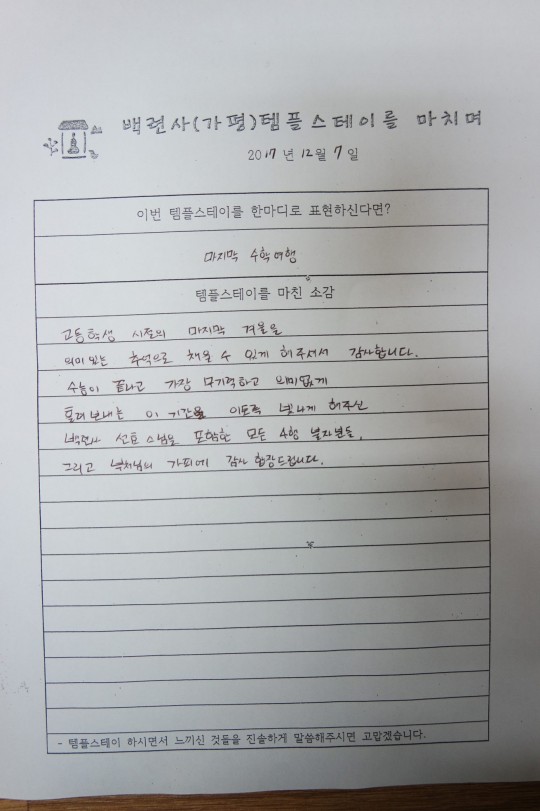 백련사(가평)템플스테이를 마치며
2017년 12월 7일
이번 템플스테이를 한마디로 표현하신다면?
마지막 수학여행
템플스테이를 마친 소감
고등학생 시절의 마지막 겨울을
의미 있는 추억으로 채울 수 있게 해주셔서 감사합니다.
수능이 끝나고 가장 무기력하고 의미없게
흘려보내는 이 기간을 이토록 빛나게 해주신
백련사 선효 스님을 포함한 모든 수행 봉자분들,
그리고 부처님의 가피에 감사 합장드립니다.
- 템플스테이 하시면서 느끼신 것들을 진솔하게 말씀해주시면 고맙겠습니다.